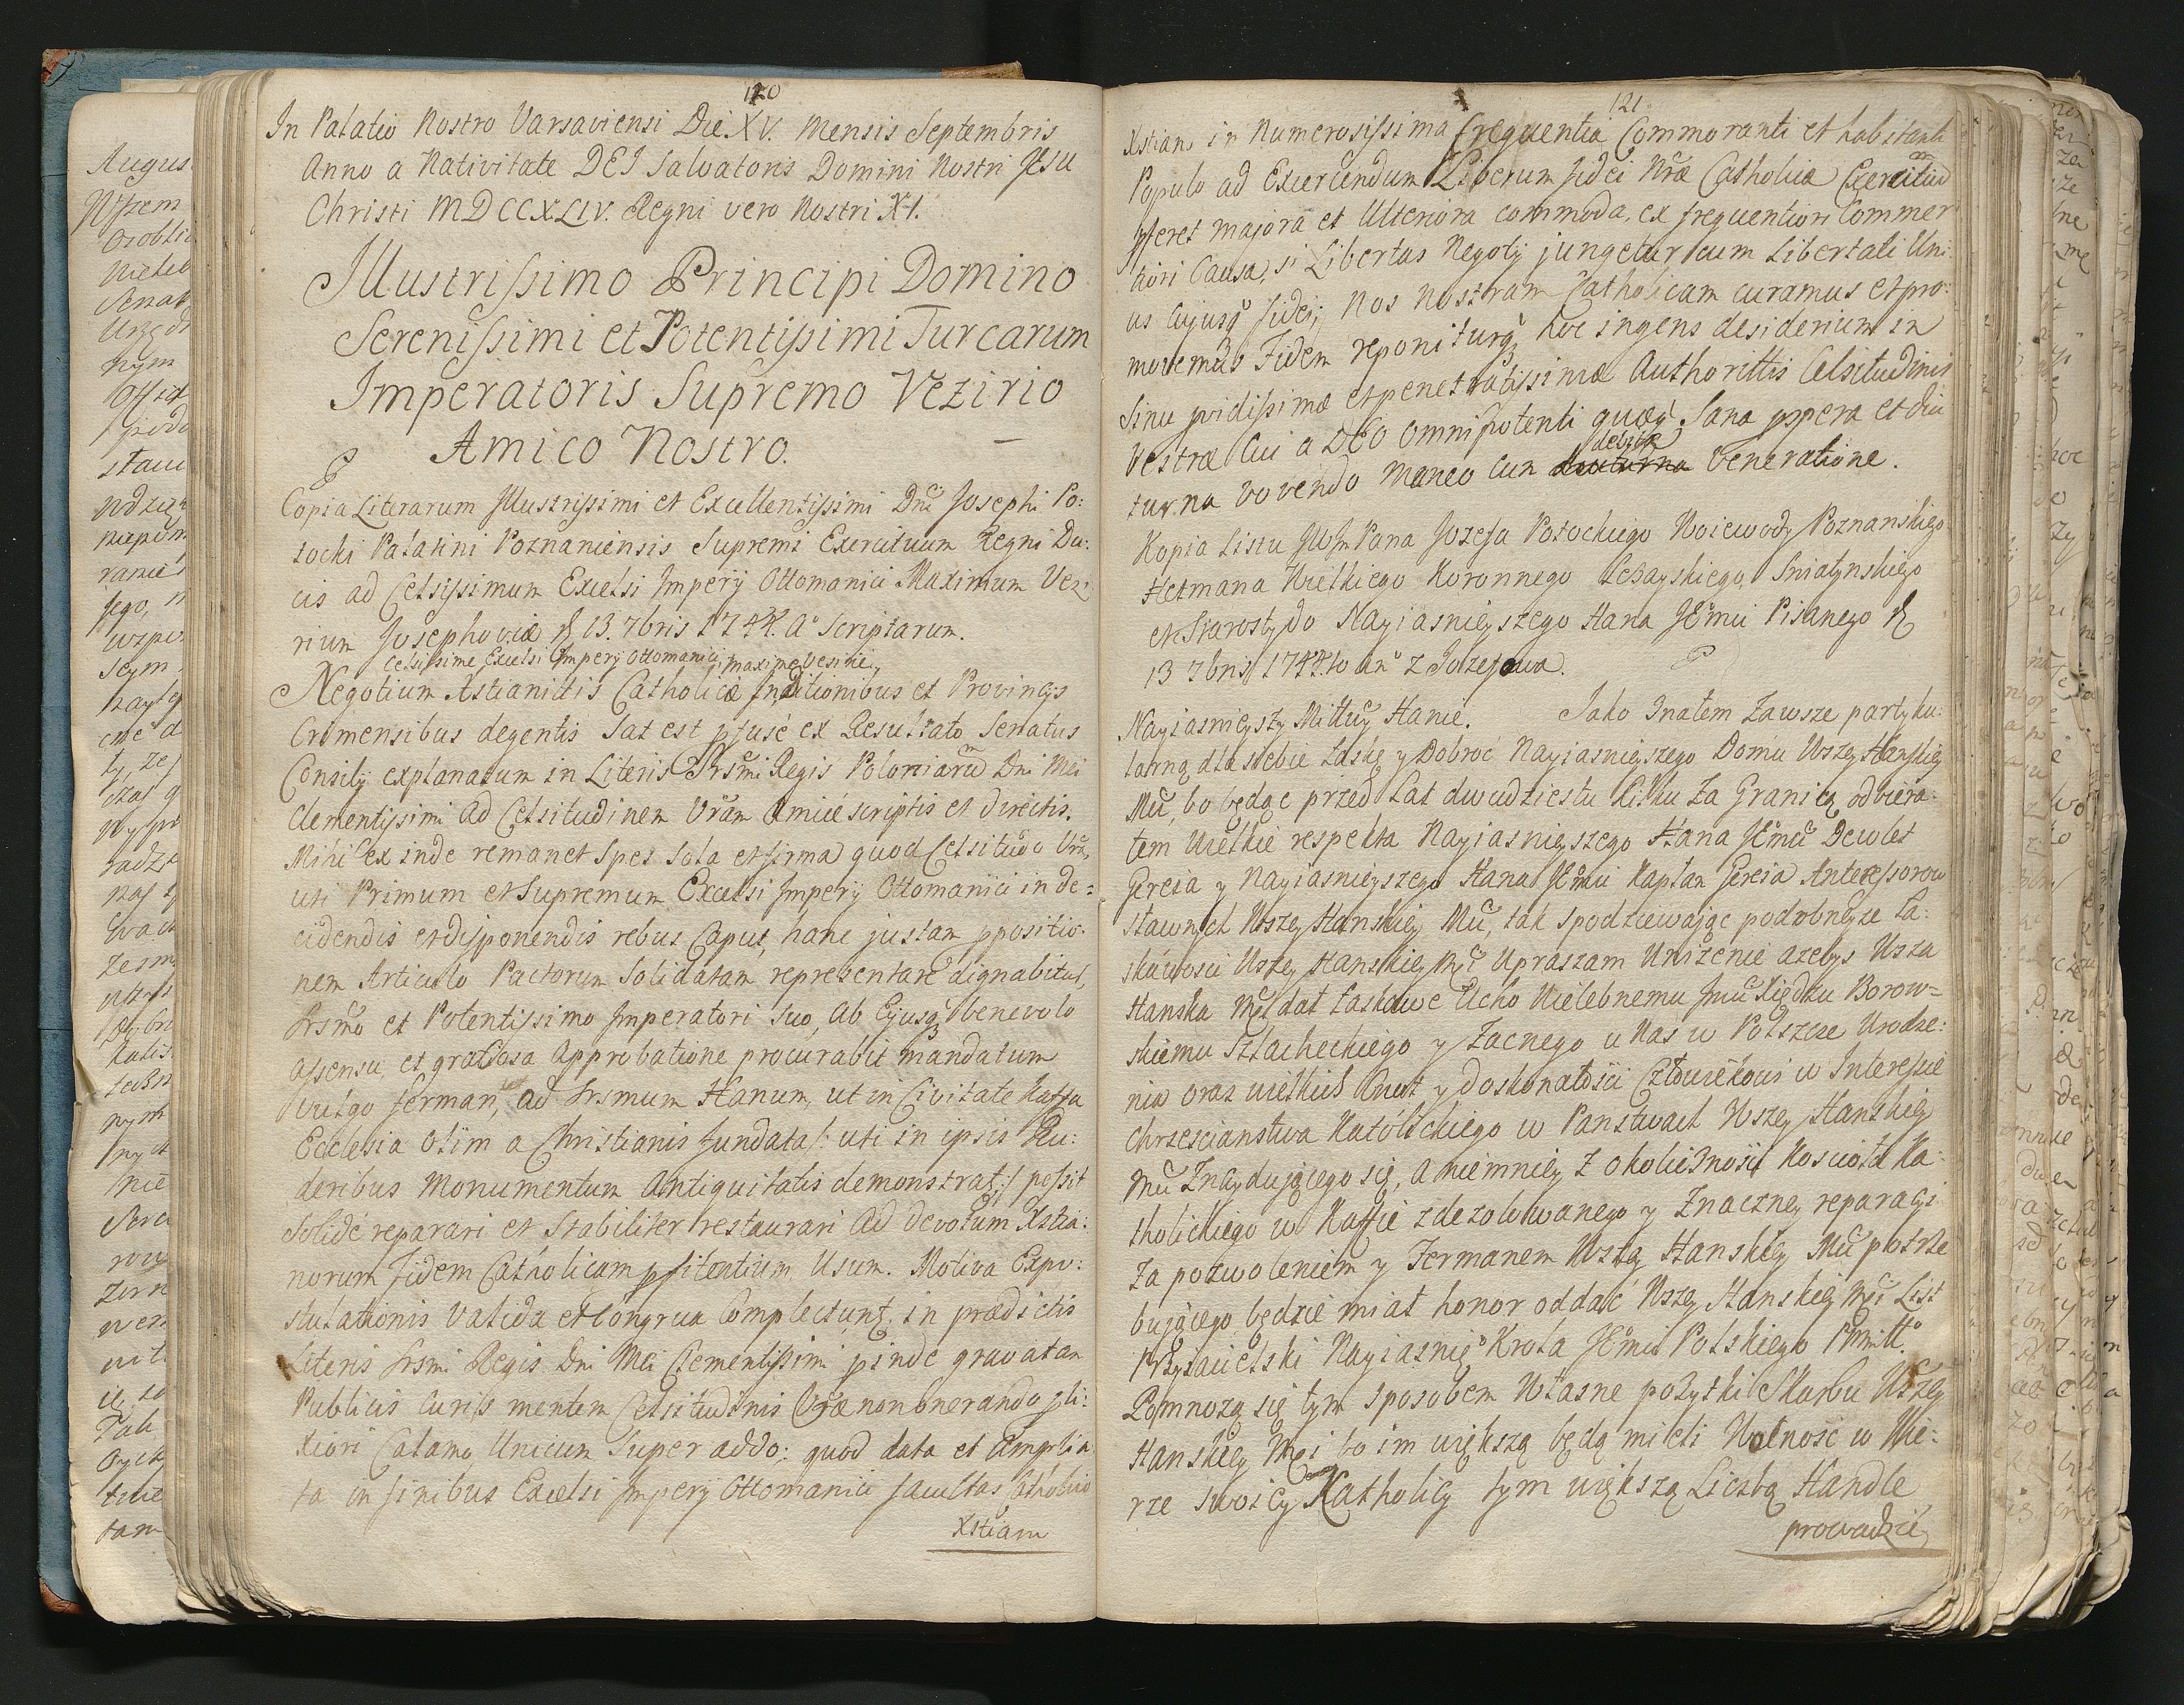 120
In Palatio Nostro Varsaviensi Die XV. Mensis Septembris
Anno a Nativitate DEI Salvatoris Domini Nostri JESU
Christi MDCCXLIV. Regni vero Nostri XI.
Illustrissimo Principi Domino
Serenissimi et Potentissimi Turcarum
Imperatoris Supremo Vezirio
Amico Nostro.
Copia Literarum Illustrissimi et Excellentissimi Dni Josephi Po:
tocki Palatini Poznaniensis Supremi Exercituum Regni Du:
cis ad Celsissimum Excelsi Imperij Ottomanici Maximum Vezi
rium Josephoviæ d 13. 7bris 1744. Aº Scriptarum.
Celsissime Excelsi Imperij Ottomanici maxime Vesirie
Negotium Xstianittis Catholicæ in Ditionibus et Provincijs
Crimensibus degentis Sat est pfusé ex Resultato Senatus
Consilij explanatum in Literis Srsmi Regis Poloniarū Dni Mei
Clementissimi ad Celsitudinem Vram Amicé scriptis et directis.
Mihi ex inde remanet Spes Sola et firma quod Celsitudo Vra,
uti Primum et Supremum Excelsi Imperij Ottomanici in de=
cidendis et disponendis rebus Caput, hanc justam ppositio:
nem Articulo Pactorum Solidatam, representare dignabitur,
Srsmo et Potentissimo Imperatori Suo, ab Ejusq₃ benevolo
assensu, et gratiosa Approbatione procurabit mandatum
vulgo ferman, ad Srsmum Hanum, ut in Civitate Kaffa
Ecclesia olim a Christianis fundata /: uti in ipsis Ru:
deribus Monumentum Antiquitatis demonstrat :/ possit
Solidé reparari et Stabiliter restaurari ad devotum Xstia:
norum fidem Catholicam pfitentium Usum. Motiva Expo:
stulationis Valida et Congrua Complectunt. in prædictis
Literis Srsmi Regis Dni Mei Clementissimi pinde gravatam
Publicis Curis mentem Celsitudinis Vræ non onerando pli:
xiori Calamo, Unicum Super addo: quod data et Amplia
ta in finibus Excelsi Imperij Ottomanici facultas Catholico
Xstiam
121
Xstiano in Numerosissima frequentia Commoranti et habitanti
Populo ad Exercendum Liberum fidei Nræ Catholicæ Exercitiū
pferet majora et Ulteriora commoda, ex frequentiori Commer
tiori Causa, si Libertas Negotij jungetur cum Libertati Uni:
us Cujusq₃ fidei; Nos Nostram Catholicam curamus et pro:
movemus Fidem reponiturq₃ hoc ingens desiderium in
Sinu pvidissimæ et penetratissimæ Authorittis Celsitudinis
Vestræ Cui a DEO omnipotenti quæq₃ Sana pspera et diu
turna vovendo Maneo Cum debita Veneratione.
Kopia Listu JWJm Pana Jozefa Potockiego Woiewody Poznanskiego
Hetmana Wielkiego Koronnego Lezayskiego, Sniatynskiego
et Starosty do Nayiasnieyszego Hana JEmci Pisanego d
13 7bris 1744to anº z Jozefowa.
Nayiasnieyszy Mitsciy Hanie. Jako Znałem Zawsze partyku:
larną dla siebie Łaskę y Dobroć Nayiasnieyszego Domu Wszey Hanskiey
Mci, bo będąc przed lat dwudziestu kilku za Granicą odbiera:
łem Wielkie respekta Nayiasnieyszego Hana JEmci Dewlet
Gereia y Nayiasnieyszego Hana JEmci Kaplan Gereia Antecessorow
sławnych Wszey Hanskiey Mci, tak spodziewając podobneyze Ła:
skáwosci Wszey Hanskiey Mci Upraszam Unizenie azebys Wsza
Hanska Mć dał łaskawe Ucho Wielebnemu Jmci Xiędzu Borow=
skiemu Szlacheckiego y Zacnego u Nas w Polszcze Urodze:
nia oraz wielkich Cnot y doskonałości Człowiekowi w Interessie
Chrzescianstwa Katólickiego w Panstwach Wszey Hanskiey
Mci Znayduiącego się, a niemniey z okoliczności Kościoła Ka:
tholickiego w Kaffie zdezolowanego y Znaczney reparacyi
Za pozwoleniem y Fermanem Wszey Hanskiey Mci potrze
buiącego będzie miał honor oddać Wszey Hanskiey Mci List
Przyiacielski Nayiasnieº Krola JEmci Polskiego PNMiłº.
Pomnożą się tym sposobem Własne pożytki Skarbu Wszey
Hanskiey Mci bo im większą będą mieli Wolność w Wie:
rze swoiey Katholicy tym większą Liczbą Handle
prowadzić